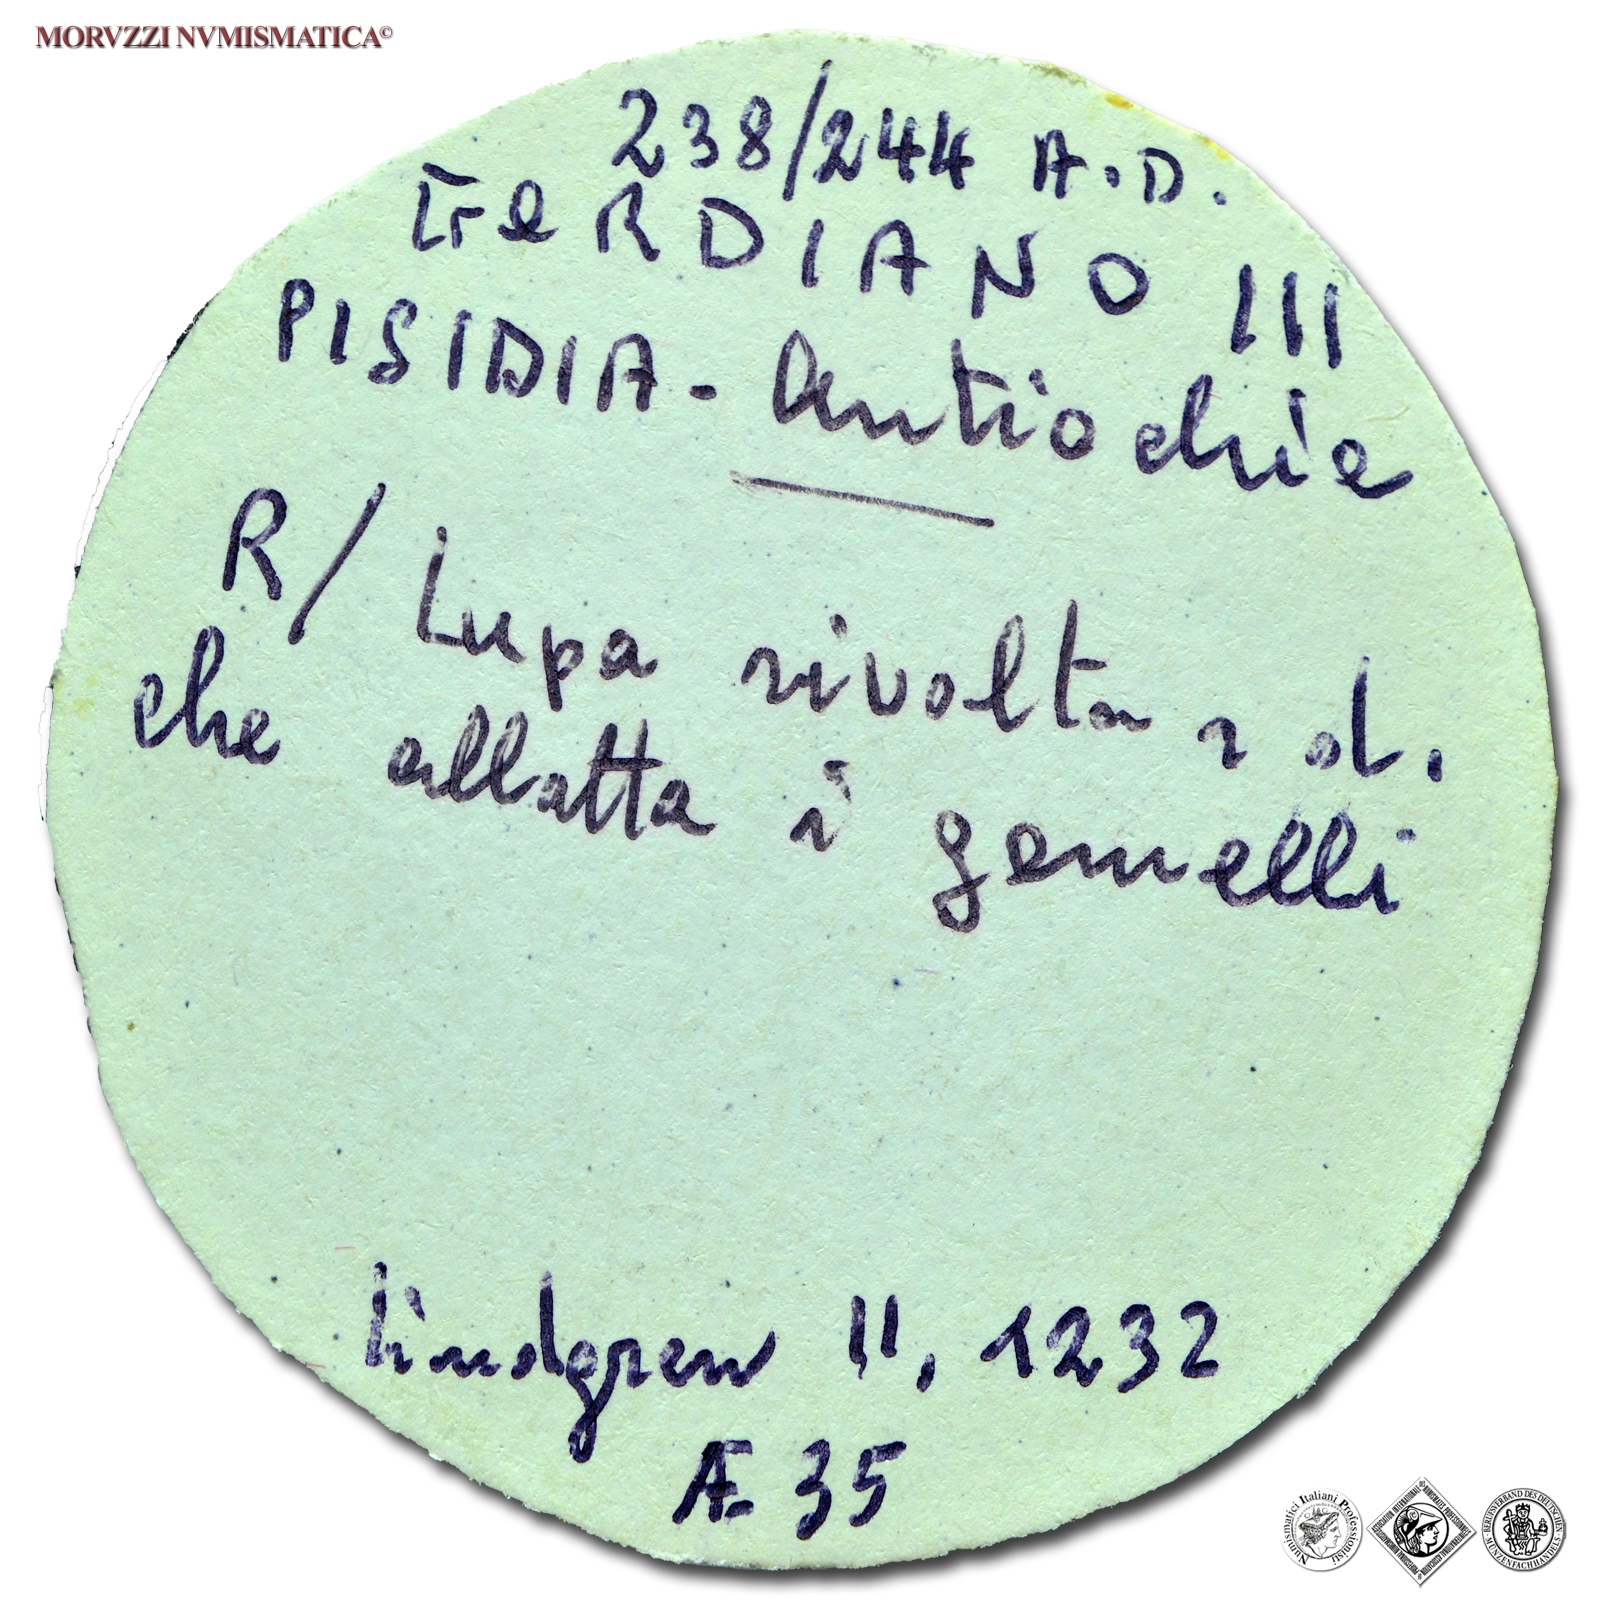 MORVZZI NVMISMATICA©
238/244 A.D.
RDIANO III
PISIDIA - Antiochia
R/ Lupa rivolta a d.
che allatta i gemelli
Lindgren II, 1232
Æ 35
Numismatici Italiani Professionisti
ASSOCIATION INTERNATIONALE DES NUMISMATES PROFESSIONNELS
BERUFSVERBAND DES DEUTSCHEN MÜNZENFACHHANDELS